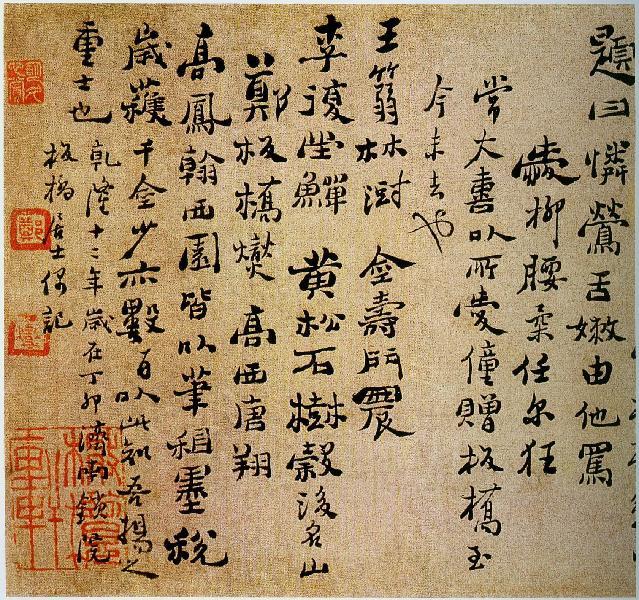 題曰憐鶯舌嫩由他罵
愛柳腰柔任尔狂
常大喜以所愛僮贈板橋至
今未去也
王篛林澍 金壽門農
李復堂鱓 黃松石樹穀後名山
鄭板橋燮 高西唐翔
高鳳翰西園皆以筆租墨稅
歲穫千金少亦數百以此知吾揚之
重士也 乾隆十二年歲在丁卯濟南鎖院
板橋居士偶記